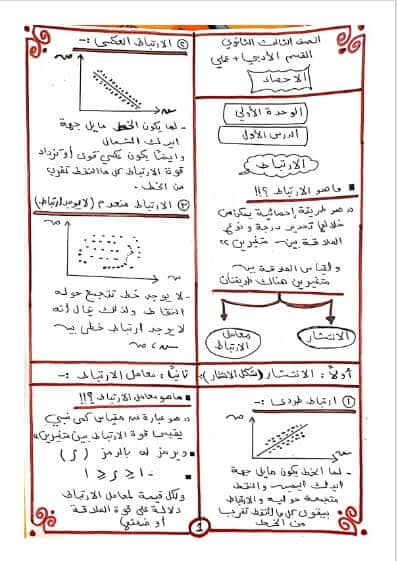 الصف الثالث الثانوي
القسم الأدبي + علمي
الاحصاء
الوحدة الأولي
الدرس الأول
الارتباط
ما هو الارتباط ؟!!
هو طريقة إحصائية يمكن من
خلالها تحديد درجة ونوع
العلاقة بين متغيرين
ولقياس العلاقة بين
متغيرين هناك طريقتان
الانتشار
معامل
الارتباط
أولاً: الانتشار (شكل الانتشار):
① ارتباط طردي :-
ص
س
- لما الخط يكون مايل جهة
اليمين والنقط
متجمعة حواليه والارتباط
بيقوي كل ما النقط تقرب
من الخط
② الارتباط العكسي :-
ص
س
- لما يكون الخط مايل جهة
الشمال
وايضاً يكون عكسي قوي أو تزداد
قوة الارتباط كل ما النقط تقرب
من الخط.
③ الارتباط منعدم (لا يوجد ارتباط)
ص
س
- لا يوجد خط تتجمع حوله
النقاط ولذلك يقال أنه
لا يوجد ارتباط خطي بين
س ، ص
ثانياً: معامل الارتباط :-
ما هو معامل الارتباط ؟!!
هو عبارة عن مقياس كمي نسبي
يقيس قوة الارتباط بين متغيرين
ويرمز له بالرمز (ر)
-١ ≤ ر ≤ ١
ولكل قيمة لمعامل الارتباط
دلالة على قوة العلاقة
أو ضعفها
1